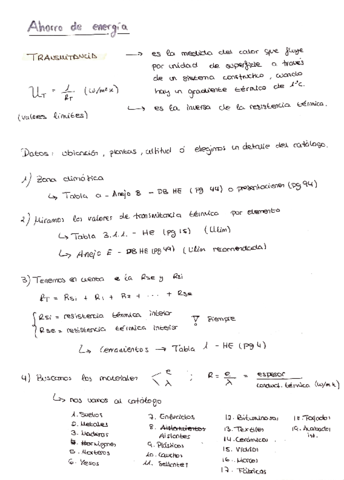 Ahorro de energía
TRANSMITANCIA → es la medida del calor que fluye
por unidad de superficie a través
de un sistema constructivo, cuando
hay un gradiente térmico de 1ºC.
U_T = 1/R_T (W/m²K)
(valores límites)
→ es la inversa de la resistencia térmica.
Datos: ubicación, plantas, altitud ó elegimos un detalle del catálogo.
1) Zona climática
↳ Tabla a - Anejo B - DB HE (pg 44) o presentaciones (pg 94)
2) Miramos los valores de transmitancia térmica por elemento
↳ Tabla 3.1.1. - HE (pg 15) (Ulim)
↳ Anejo E - DB HE (pg 49) (Ulim recomendada)
3) Tenemos en cuenta e la Rse y Rsi
R_T = Rsi + R1 + R2 + ... + Rse
Rsi = resistencia térmica interior
Rse = resistencia térmica interior
Siempre
↳ Cerramientos → Tabla 1 - HE (pg 4)
4) Buscamos los materiales < e λ ; R = e/λ = espesor/conduct. térmica (W/mK)
↳ nos vamos al catálogo
1. Suelos
2. Metales
3. Maderas
4. Hormigones
5. Morteros
6. Yesos
7. Enlucidos
8. Aislamientos
Aislantes
9. Plásticos
10. Cauchos
11. Sellantes
12. Bituminosos
13. Textiles
14. Cerámicos
15. Vidrios
16.
17. Fábricas
18. Forjados
19.